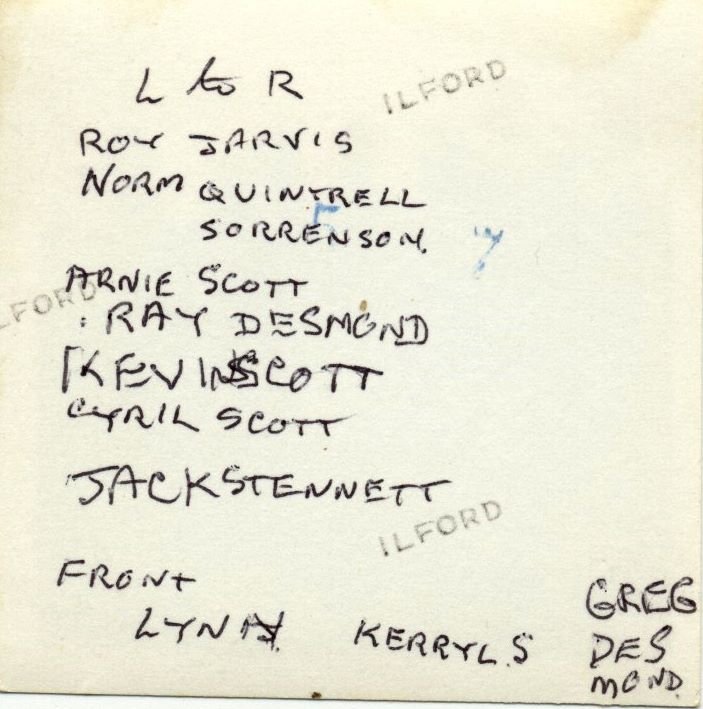 L to R
ILFORD
ROY JARVIS
NORM QUINTRELL
5
SORRENSON.
7
ARNIE SCOTT
ILFORD
: RAY DESMOND
KEVIN SCOTT
CYRIL SCOTT
JACK STENNETT
ILFORD
FRONT
LYN
KERRYL.S
GREG
DES
MOND.